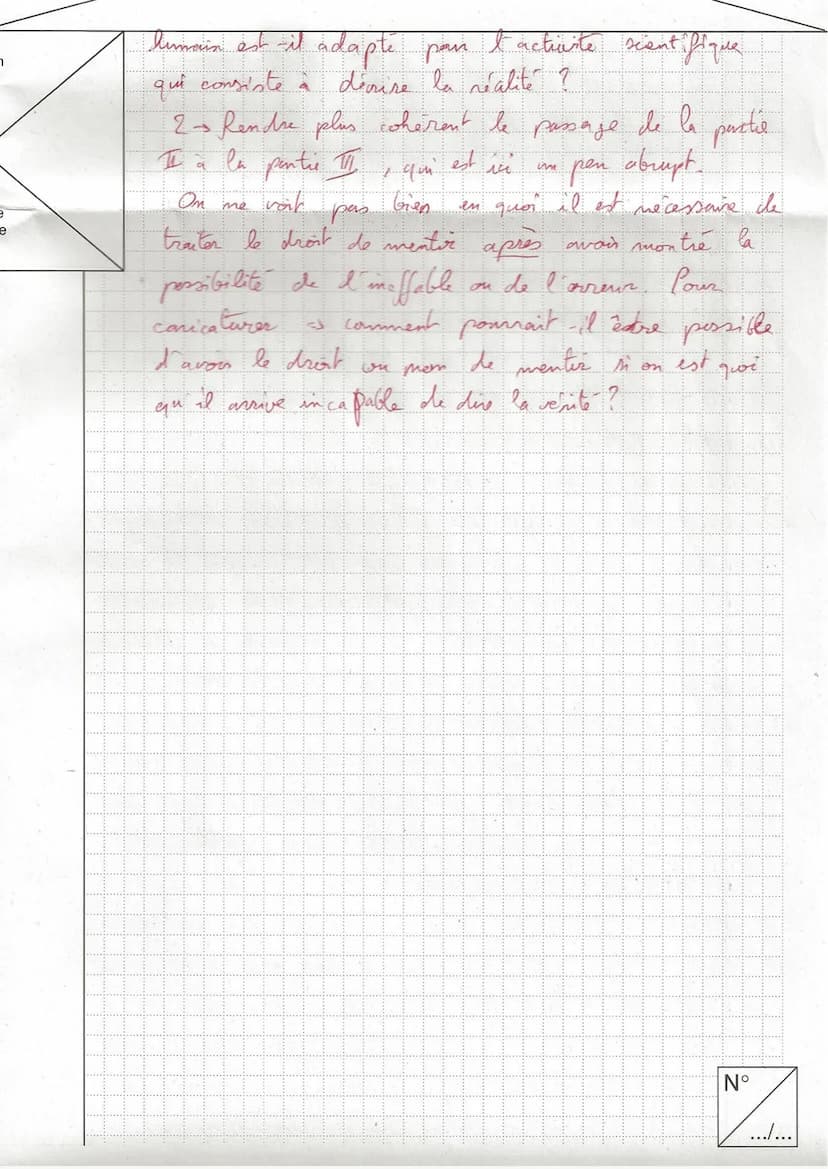 humain est-il adapté pour l'activité scientifique
qui consiste à décrire la réalité ?
2 → Rendre plus cohérent le passage de la partie
II à la partie III, qui est ici un peu abrupt.
On ne voit pas bien en quoi il est nécessaire de
traiter le droit de mentir après avoir montré la
possibilité de l'ineffable ou de l'erreur. Pour
caricaturer => comment pourrait-il être possible
d'avoir le droit ou non de mentir si on est quoi
qu'il arrive incapable de dire la vérité ?
N°
.../...